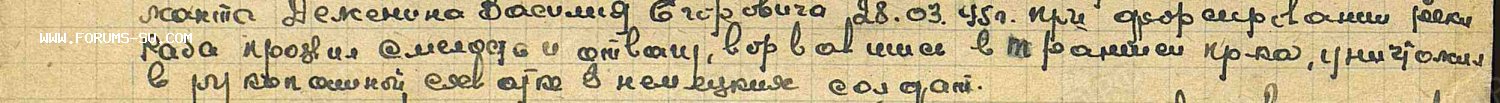 жанта Деженина Василия Егоровича 28.03.45г. при форсировании реки
www.forums-su.com
Раба проявил смелость и отвагу, ворвавшись в траншеи пр-ка, уничтожил
в рукопашной схватке 8 немецких солдат.